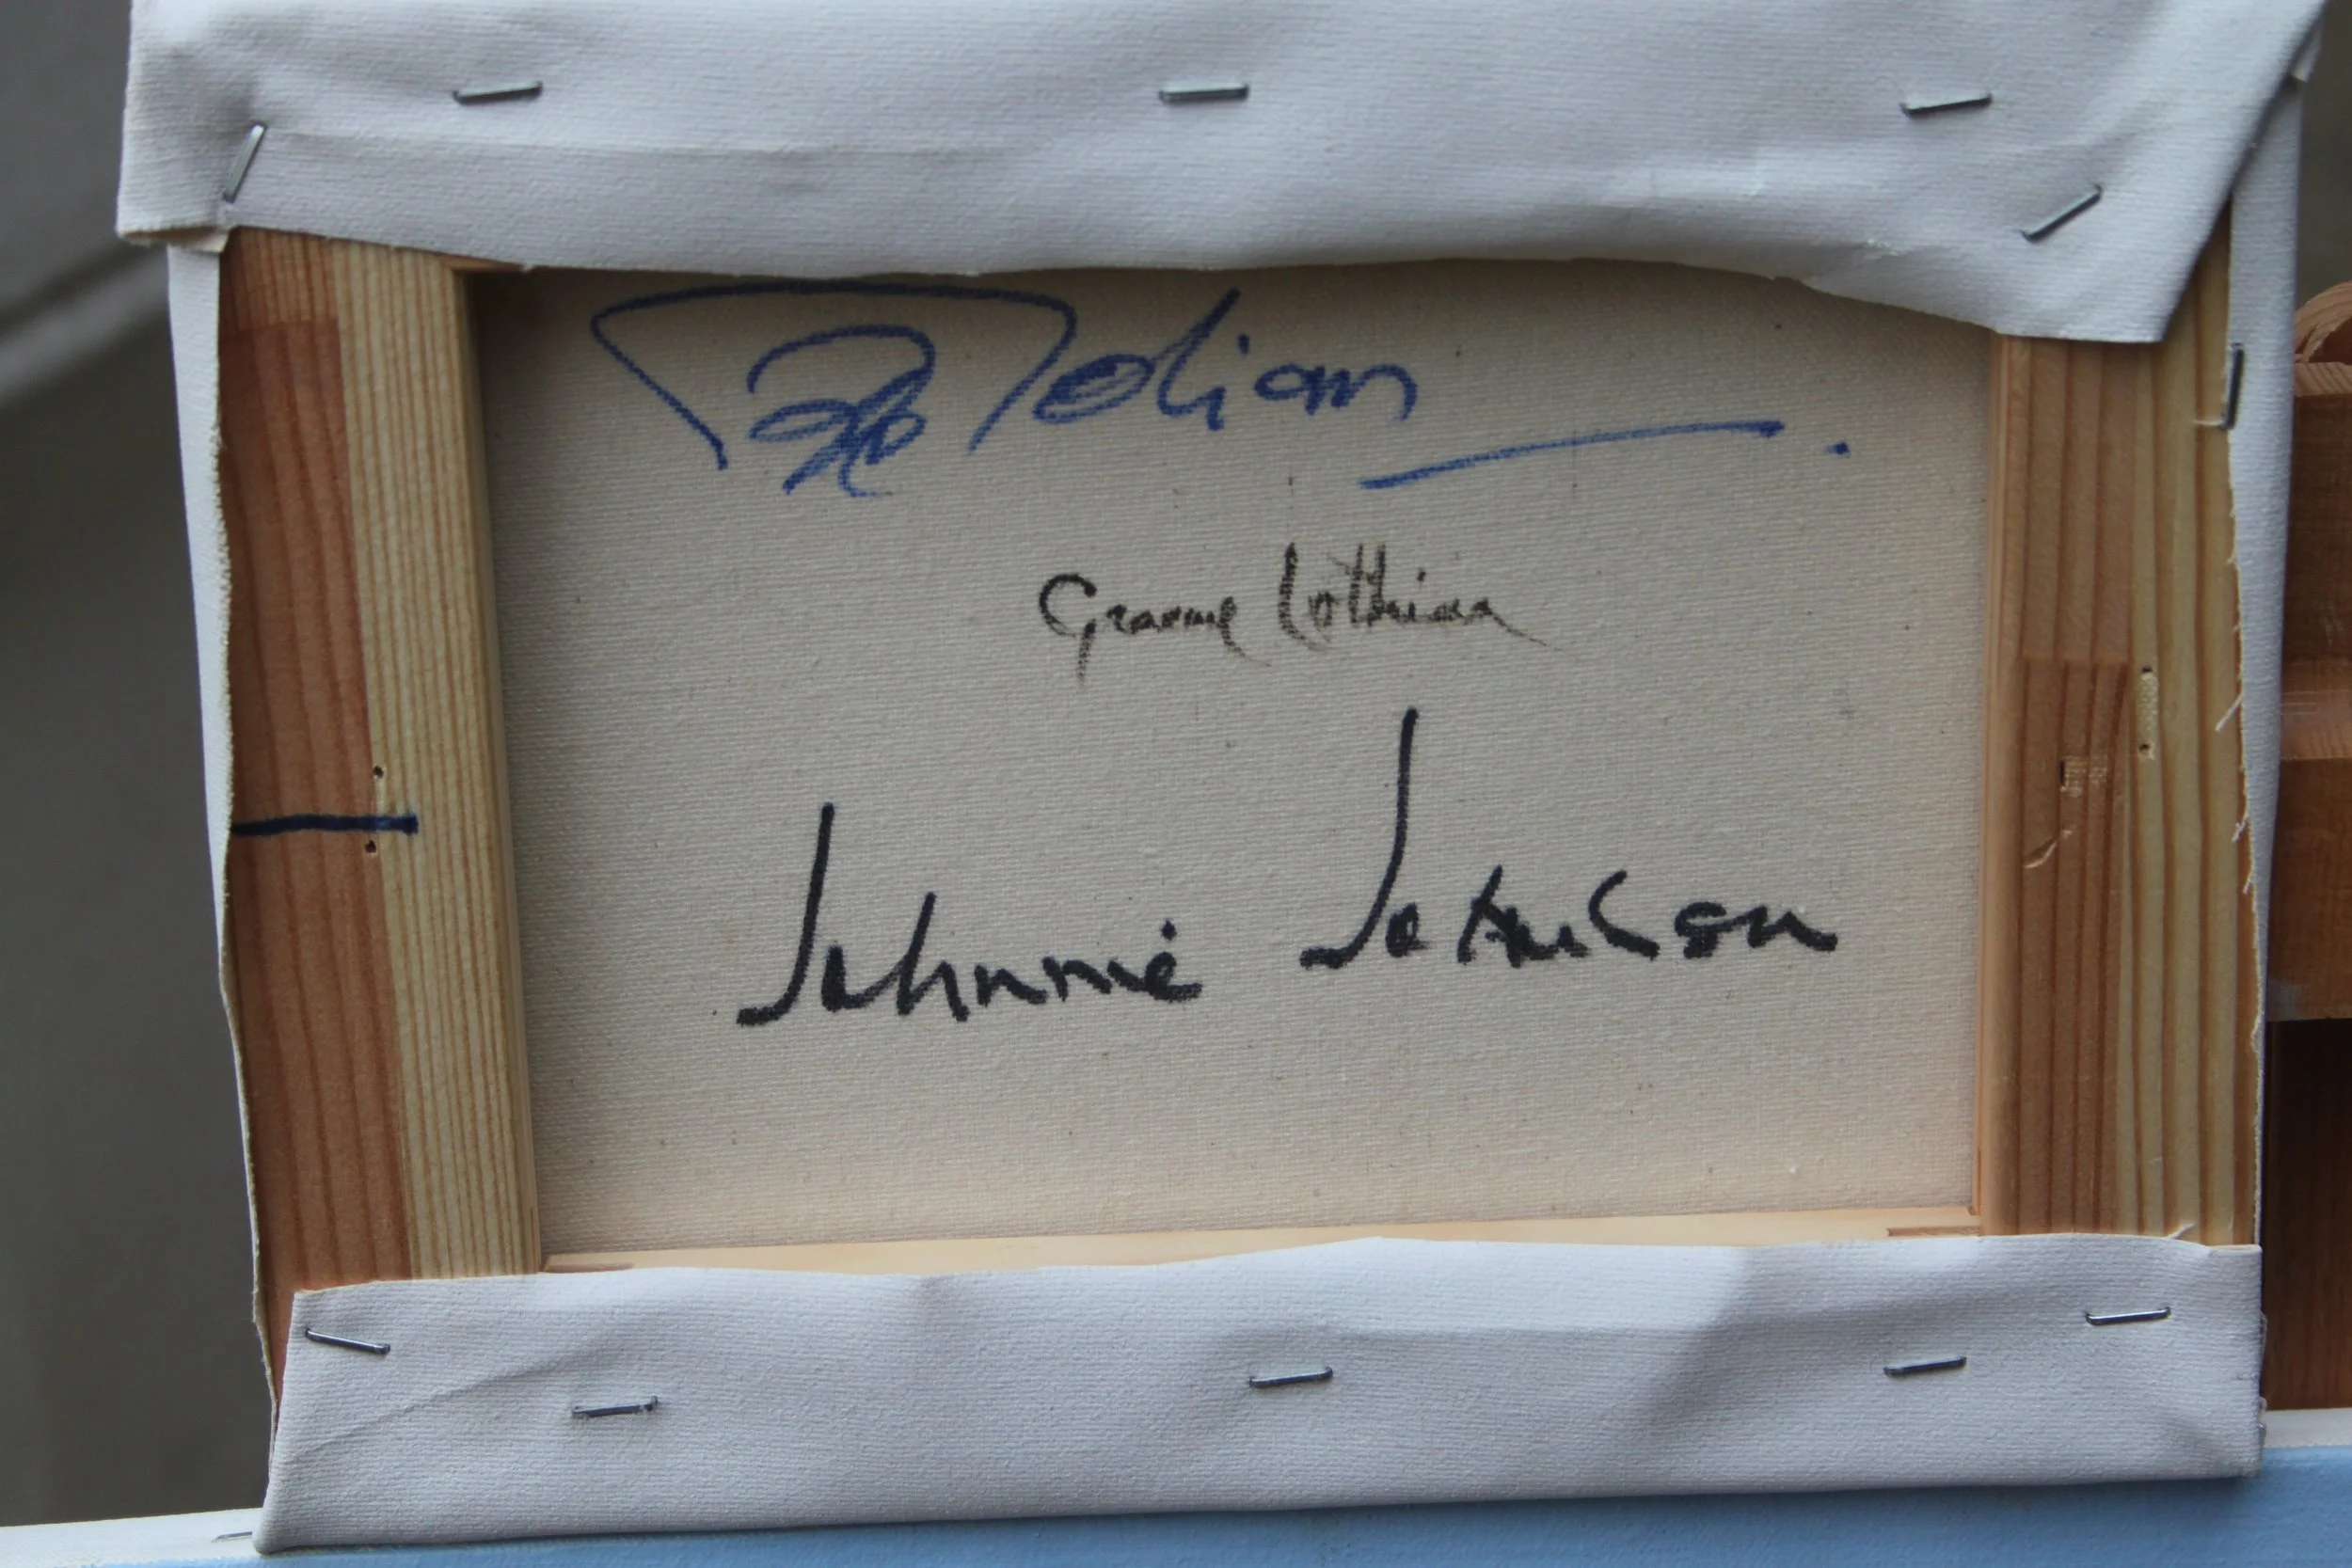 Graeme Lothian
Johnnie Johnson